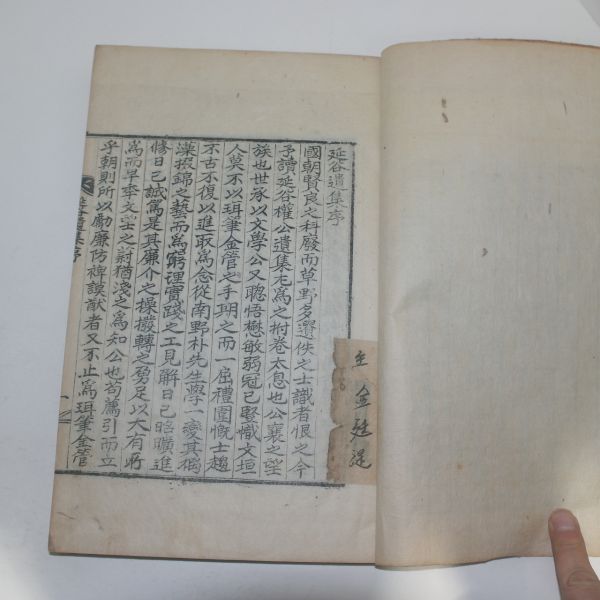 延谷遺集序
國朝賢良之科廢而草野多遺佚之士識者恨之今
予讀延谷權公遺集尤爲之拊卷太息也公襄之望
族也世承以文學公又聰悟懋敏弱冠已竪幟文垣
人莫不以珥筆金管之手期之而一屈禮圍慨士趨
不古不復以進取爲念從南野朴先生學一變其摛
藻掇錦之藝而爲窮理實踐之工見解日已昭曠進
修日已誠篤是其廉介之操撥轉之勇足以大有所
爲而早卒文望之蔚猶淺之爲知公也苟薦引而立
乎朝則所以勵廉防裨謨猷者又不止爲珥筆金管
谷遺集序
一
主 金